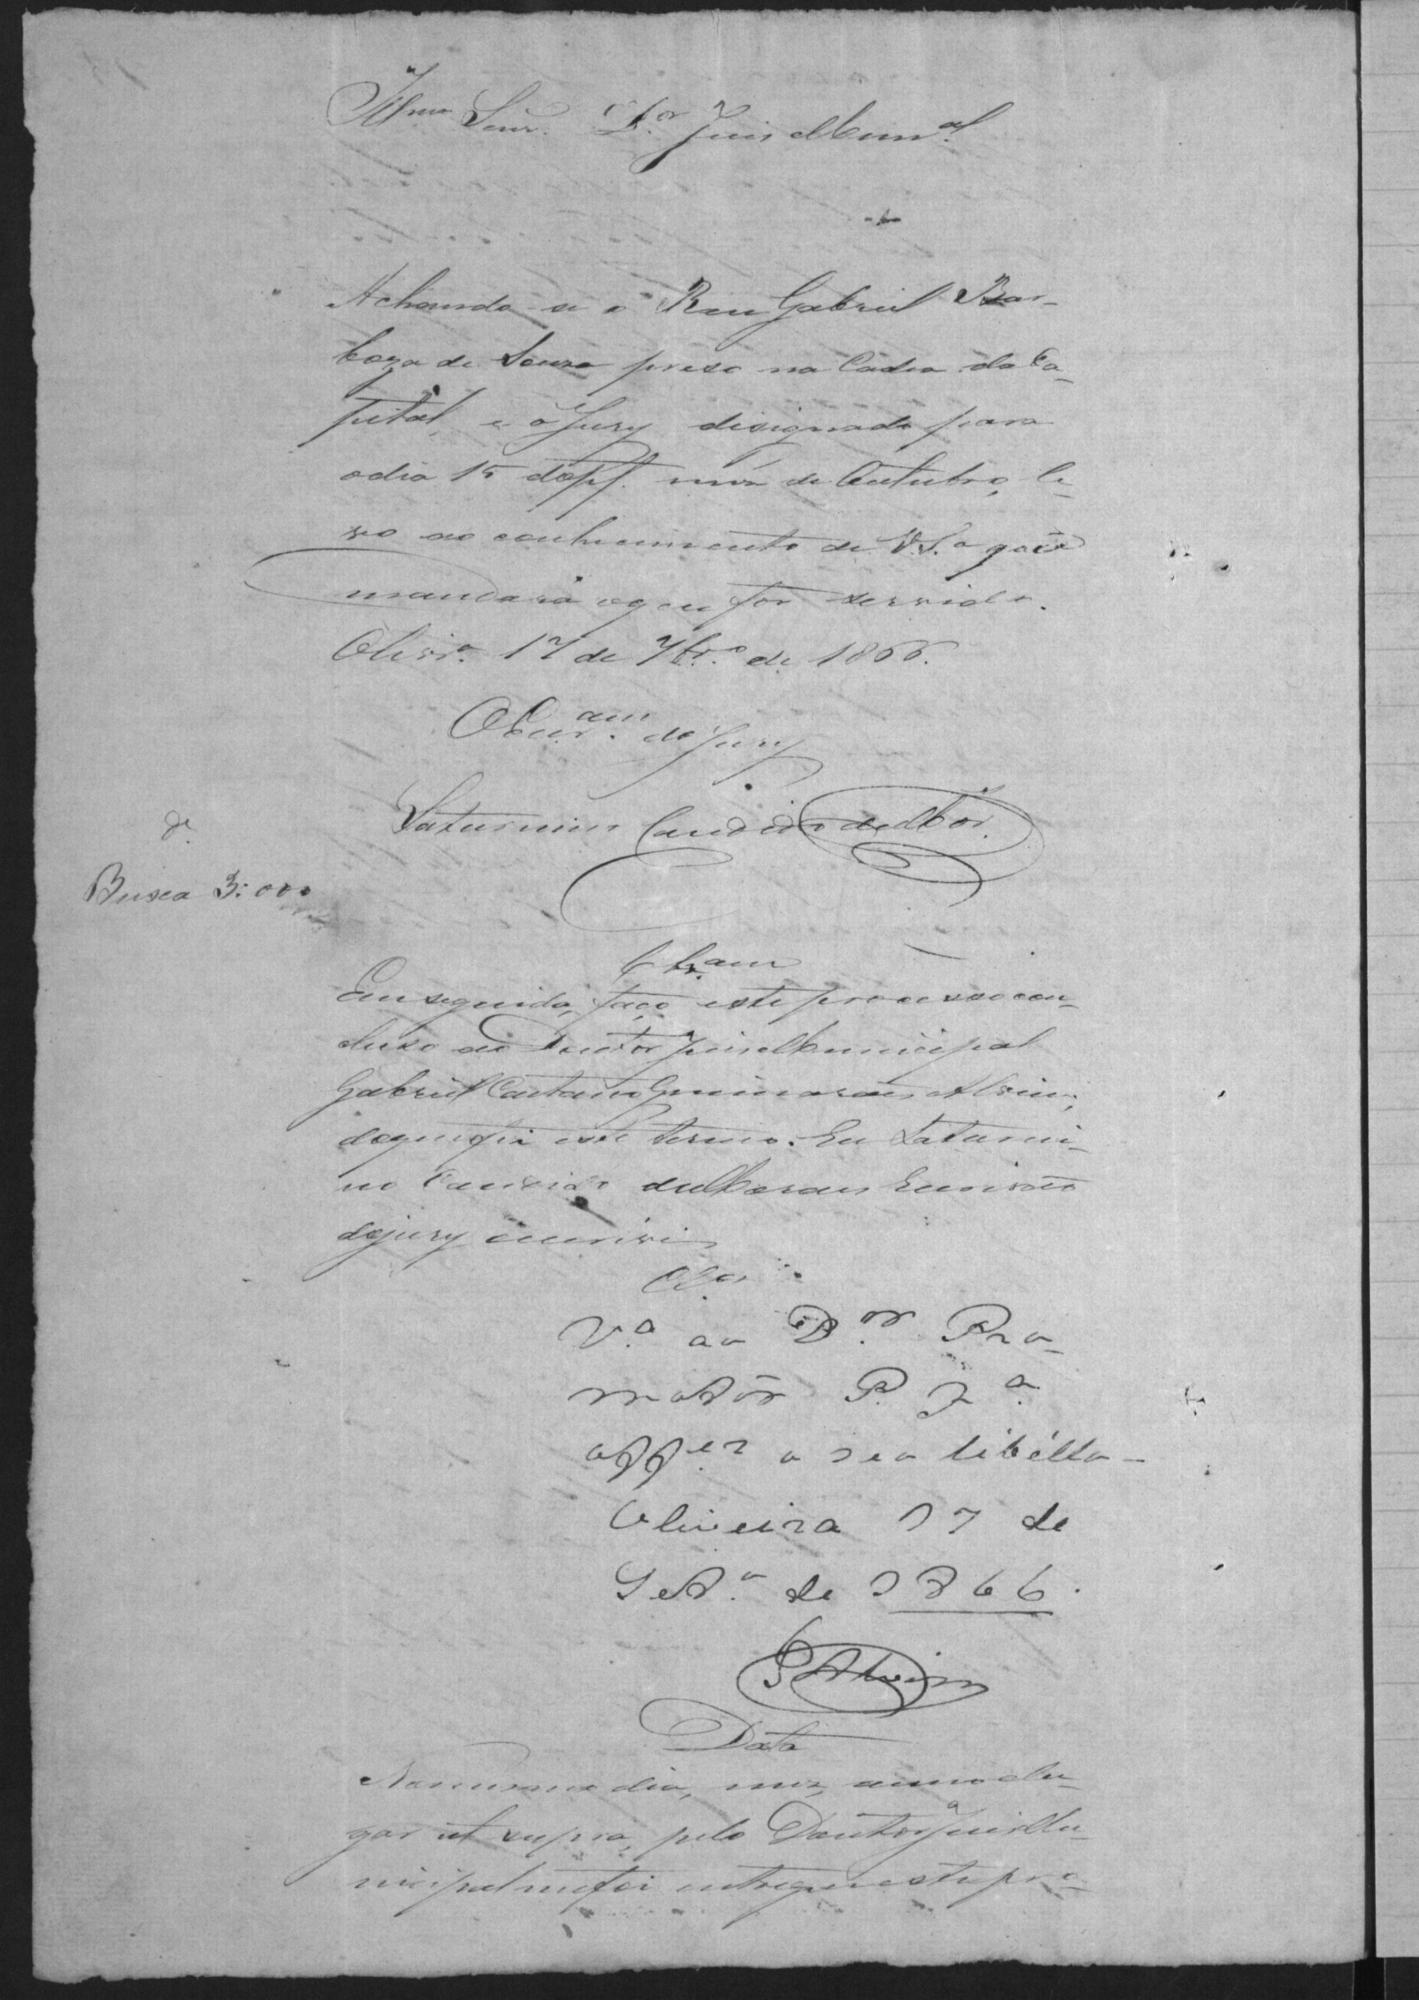 Illmo Senr. Dr Juis Mun.al
Achando se o Reu Gabriel Bar-
boza de Souza preso na Cadea da Ca-
pital, e o Jury designado para
o dia 15 do pf. mez de Outubro, le-
vo ao conhecimento de V.S.a que
mandará o que for servido.
Olivr.a 17 de 7br.o de 1866.
O Escr.am do Jury
Saturnino Candido de Mor.
Busca 3:000
Em seguida, faço este processo con-
cluso ao Doutor Juis Municipal
Gabriel Caetano Guimaraes Alvim,
do que fiz este termo. Eu Saturni-
no Candido de Moraes Escrivão
do jury escrivi
Clos
V.a ao D.or Pro-
motôr P. Ja.
off.er o seo libéllo -
Oliveira 17 de
Set.o de 1866.
GAlvim
Data
No mesmo dia, mez, anno e lu-
gar ut supra, pelo Doutor Juis Mu-
nicipal me foi entregue este pro-